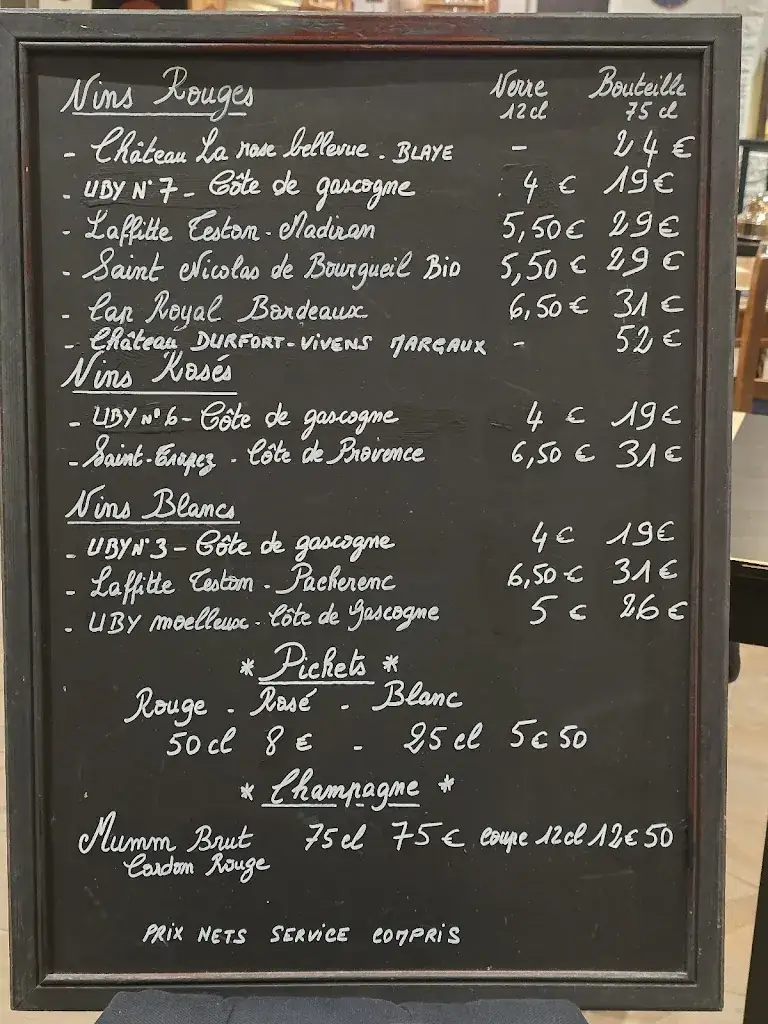 Vins Rouges Verre Bouteille
12cl 75 cl
- Château La rose bellevue . BLAYE - 24 €
- UBY N°7 - Côte de gascogne 4 € 19€
- Laffitte Teston - Madiran 5,50€ 29€
- Saint Nicolas de Bourgueil Bio 5,50 € 29 €
- Cap Royal Bordeaux 6,50€ 31 €
- Château DURFORT-VIVENS MARGAUX - 52 €
Vins Rosés
- UBY N°6 - Côte de gascogne 4 € 19€
- Saint-Tropez - Côte de Provence 6,50 € 31€
Vins Blancs
- UBY N°3 - Côte de gascogne 4€ 19€
- Laffitte Teston - Pacherenc 6,50€ 31€
- UBY moelleux - Côte de Gascogne 5 € 26€
* Pichets *
Rouge - Rosé - Blanc
50cl 8 € - 25 cl 5€50
* Champagne *
Mumm Brut 75cl 75€ coupe 12cl 12€50
Cordom Rouge
PRIX NETS SERVICE COMPRIS